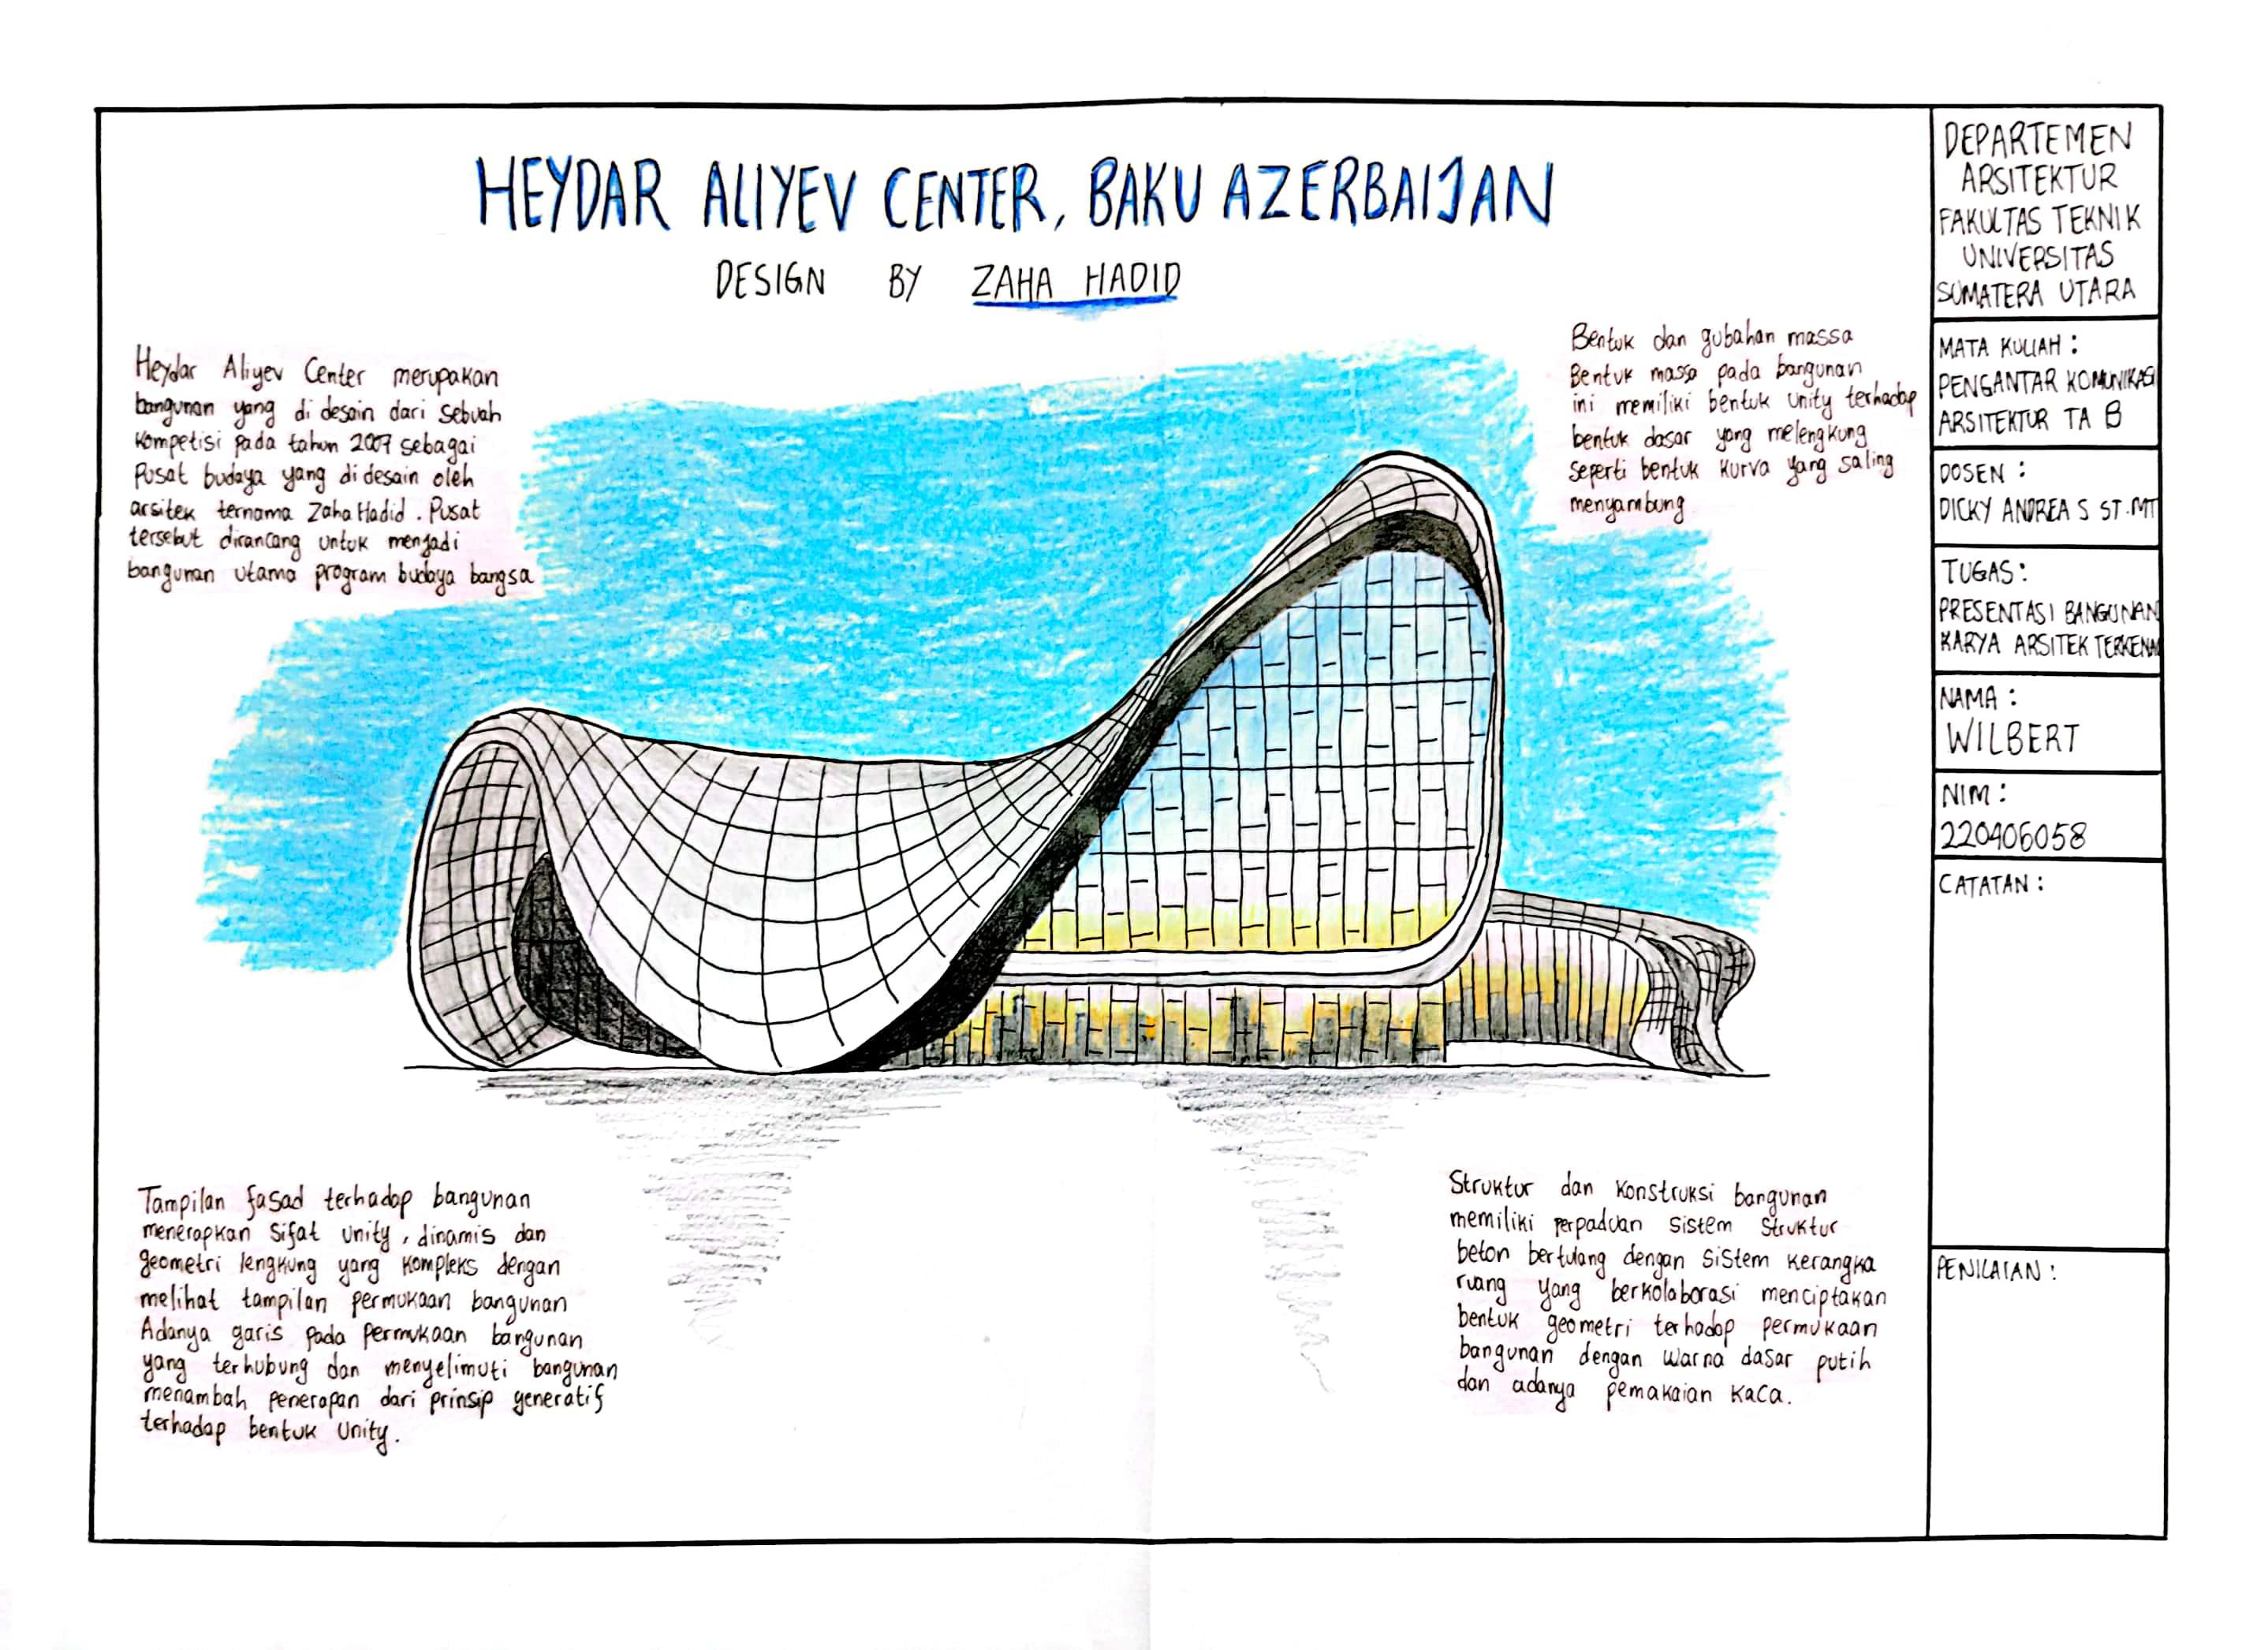 HEYDAR ALIYEV CENTER, BAKU AZERBAIJAN
DESIGN BY ZAHA HADID
Heydar Aliyev Center merupakan
bangunan yang di desain dari sebuah
kompetisi pada tahun 2007 sebagai
Pusat budaya yang di desain oleh
arsitek ternama Zaha Hadid. Pusat
tersebut dirancang untuk menjadi
bangunan utama program budaya bangsa
Bentuk dan gubahan massa
Bentuk massa pada bangunan
ini memiliki bentuk unity terhadap
bentuk dasar yang melengkung
seperti bentuk kurva yang saling
menyambung
Tampilan fasad terhadap bangunan
menerapkan sifat unity, dinamis dan
geometri lengkung yang kompleks dengan
melihat tampilan permukaan bangunan
Adanya garis pada permukaan bangunan
yang terhubung dan menyelimuti bangunan
menambah penerapan dari prinsip generatif
terhadap bentuk unity.
Struktur dan konstruksi bangunan
memiliki perpaduan sistem struktur
beton bertulang dengan sistem kerangka
ruang yang berkolaborasi menciptakan
bentuk geometri terhadap permukaan
bangunan dengan warna dasar putih
dan adanya pemakaian kaca.
DEPARTEMEN
ARSITEKTUR
FAKULTAS TEKNIK
UNIVERSITAS
SUMATERA UTARA
MATA KULIAH :
PENGANTAR KOMUNIKASI
ARSITEKTUR TA B
DOSEN :
DICKY ANDREA S ST.MT
TUGAS :
PRESENTASI BANGUNAN
KARYA ARSITEK TERKENAL
NAMA :
WILBERT
NIM :
220406058
CATATAN :
PENILAIAN :